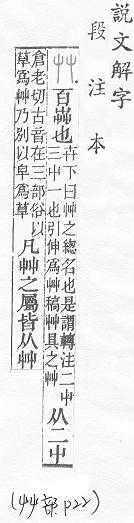 説文解字
段注本
艸 百芔也 卉下曰艸之總名也是謂轉注二屮
三屮一也引伸爲艸稿艸具之艸 从二屮
倉老切古音在三部俗以
草爲艸乃别以皁爲草 凡艸之屬皆从艸
(艸部 P22)